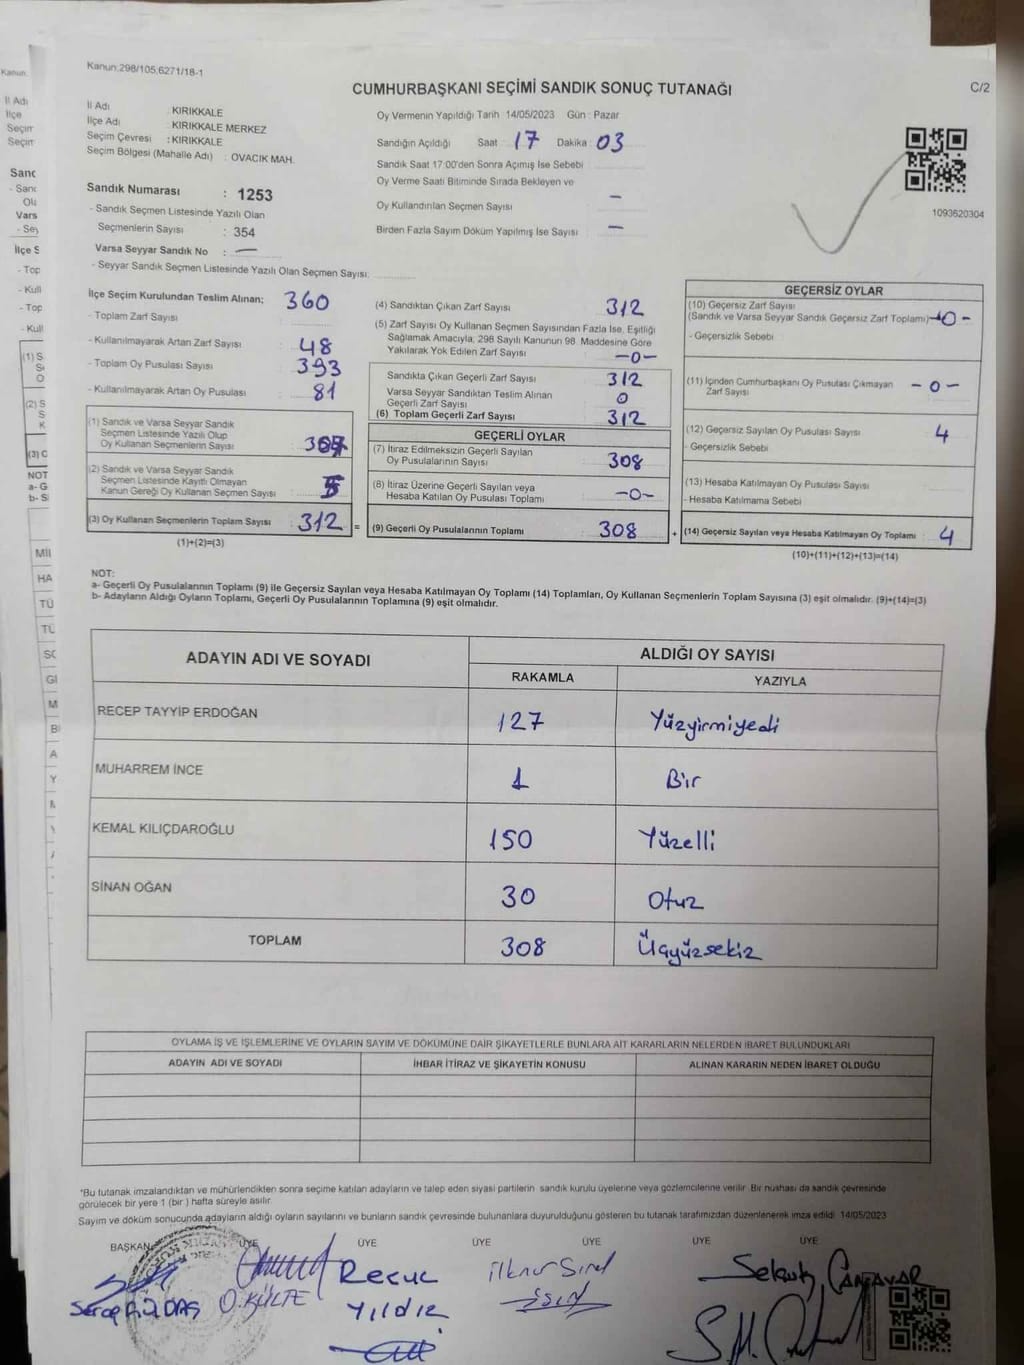 Kanun;298/105,6271/18-1
CUMHURBAŞKANI SEÇİMİ SANDIK SONUÇ TUTANAĞI
C/2
İl Adı : KIRIKKALE
İlçe Adı : KIRIKKALE MERKEZ
Seçim Çevresi : KIRIKKALE
Seçim Bölgesi (Mahalle Adı) : OVACIK MAH.
Sandık Numarası : 1253
- Sandık Seçmen Listesinde Yazılı Olan
Seçmenlerin Sayısı : 354
Varsa Seyyar Sandık No : —
- Seyyar Sandık Seçmen Listesinde Yazılı Olan Seçmen Sayısı:
Oy Vermenin Yapıldığı Tarih 14/05/2023 Gün : Pazar
Sandığın Açıldığı Saat : 17 Dakika : 03
Sandık Saat 17:00'den Sonra Açılmış İse Sebebi
Oy Verme Saati Bitiminde Sırada Bekleyen ve
Oy Kullandırılan Seçmen Sayısı —
Birden Fazla Sayım Döküm Yapılmış İse Sayısı —
1093620304
İlçe Seçim Kurulundan Teslim Alınan; 360
- Toplam Zarf Sayısı
- Kullanılmayarak Artan Zarf Sayısı 48
- Toplam Oy Pusulası Sayısı 393
- Kullanılmayarak Artan Oy Pusulası 81
(1) Sandık ve Varsa Seyyar Sandık
Seçmen Listesinde Yazılı Olup
Oy Kullanan Seçmenlerin Sayısı
(2) Sandık ve Varsa Seyyar Sandık
Seçmen Listesinde Kayıtlı Olmayan
Kanun Gereği Oy Kullanan Seçmen Sayısı
(3) Oy Kullanan Seçmenlerin Toplam Sayısı 312 =
(1)+(2)=(3)
(4) Sandıktan Çıkan Zarf Sayısı 312
(5) Zarf Sayısı Oy Kullanan Seçmen Sayısından Fazla İse, Eşitliği
Sağlamak Amacıyla, 298 Sayılı Kanunun 98. Maddesine Göre
Yakılarak Yok Edilen Zarf Sayısı —0—
Sandıkta Çıkan Geçerli Zarf Sayısı 312
Varsa Seyyar Sandıktan Teslim Alınan
Geçerli Zarf Sayısı 0
(6) Toplam Geçerli Zarf Sayısı 312
GEÇERLİ OYLAR
(7) İtiraz Edilmeksizin Geçerli Sayılan
Oy Pusulalarının Sayısı 308
(8) İtiraz Üzerine Geçerli Sayılan veya
Hesaba Katılan Oy Pusulası Toplamı —0—
(9) Geçerli Oy Pusulalarının Toplamı 308 +
GEÇERSİZ OYLAR
(10) Geçersiz Zarf Sayısı
(Sandık ve Varsa Seyyar Sandık Geçersiz Zarf Toplamı) —0—
- Geçersizlik Sebebi
(11) İçinden Cumhurbaşkanı Oy Pusulası Çıkmayan
Zarf Sayısı —0—
(12) Geçersiz Sayılan Oy Pusulası Sayısı 4
- Geçersizlik Sebebi
(13) Hesaba Katılmayan Oy Pusulası Sayısı
- Hesaba Katılmama Sebebi
(14) Geçersiz Sayılan veya Hesaba Katılmayan Oy Toplamı 4
(10)+(11)+(12)+(13)=(14)
NOT:
a- Geçerli Oy Pusulalarının Toplamı (9) ile Geçersiz Sayılan veya Hesaba Katılmayan Oy Toplamı (14) Toplamları, Oy Kullanan Seçmenlerin Toplam Sayısına (3) eşit olmalıdır. (9)+(14)=(3)
b- Adayların Aldığı Oyların Toplamı, Geçerli Oy Pusulalarının Toplamına (9) eşit olmalıdır.
ADAYIN ADI VE SOYADI ALDIĞI OY SAYISI
RAKAMLA YAZIYLA
RECEP TAYYİP ERDOĞAN 127 Yüzyirmiyedi
MUHARREM İNCE 1 Bir
KEMAL KILIÇDAROĞLU 150 Yüzelli
SİNAN OĞAN 30 Otuz
TOPLAM 308 Üçyüzsekiz
OYLAMA İŞ VE İŞLEMLERİNE VE OYLARIN SAYIM VE DÖKÜMÜNE DAİR ŞİKAYETLERLE BUNLARA AİT KARARLARIN NELERDEN İBARET BULUNDUKLARI
ADAYIN ADI VE SOYADI İHBAR İTİRAZ VE ŞİKAYETİN KONUSU ALINAN KARARIN NEDEN İBARET OLDUĞU
*Bu tutanak imzalandıktan ve mühürlendikten sonra seçime katılan adayların ve talep eden siyasi partilerin sandık kurulu üyelerine veya gözlemcilerine verilir. Bir nushası da sandık çevresinde
görülecek bir yere 1 (bir ) hafta süreyle asılır.
Sayım ve döküm sonucunda adayların aldığı oyların sayılarını ve bunların sandık çevresinde bulunanlara duyurulduğunu gösteren bu tutanak tarafımızdan düzenlenerek imza edildi. 14/05/2023
BAŞKAN ÜYE ÜYE ÜYE ÜYE ÜYE ÜYE
O.KÜLTE
Yıldız